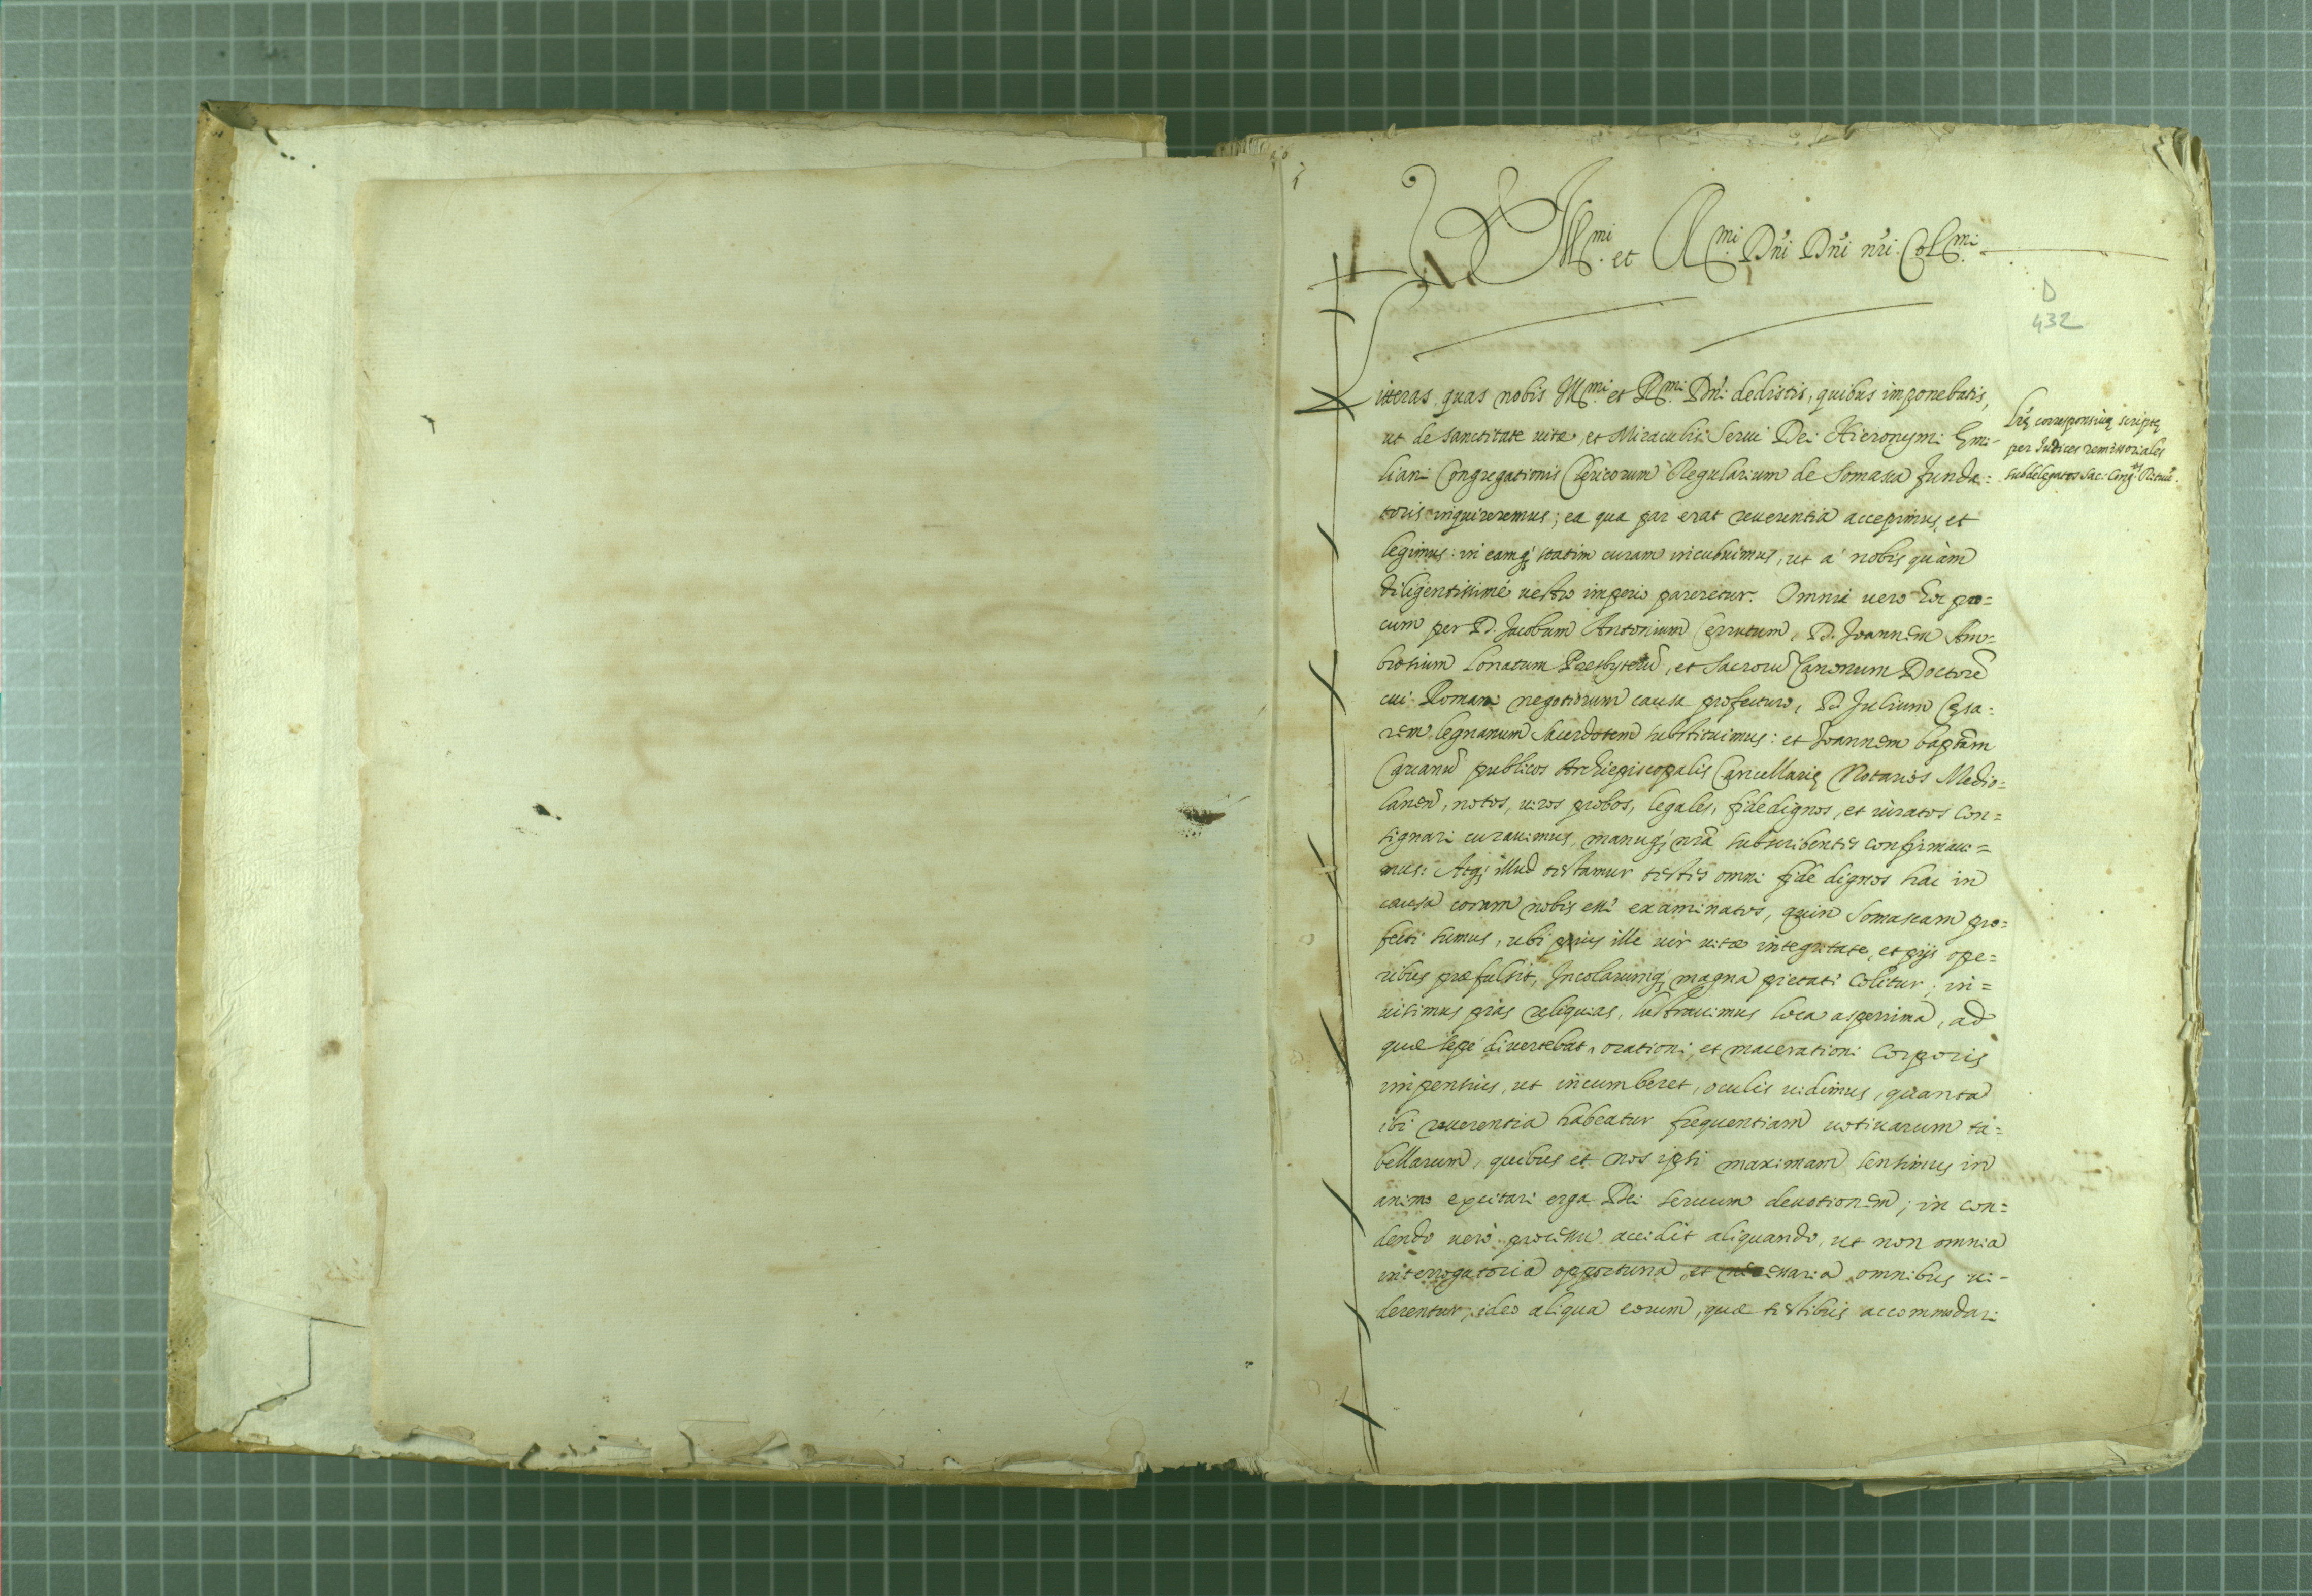 Ill.mi et R.mi Dñi Dñi nri. Col.mi
D
432
Litteras quas nobis Ill.mi et R.mi Dñi dedistis, quibus imponebatis,
ut de sanctitate uitæ, et Miraculis Serui Dei Hieronymi Emi-
liani Congregationis Clericorum Regularium de Somasca funda=
toris inquireremus; ea qua par erat reuerentia accepimus, et
legimus: in eamq; statim curam incubuimus, ut à nobis quàm
diligentissimè uestro imperio pareretur. Omnia uero hoc pro=
cum per D. Jacobum Antonium Cerrutum, D. Joannem Am=
brosium Lonatum Presbyterũ, et Sacrorũ Canonum Doctorẽ
cui Romam negotiorum causa profecturo, D. Julium Cęsa=
rem legnanum Sacerdotem substituimus: et Joannem baptam
publicos Archiepiscopalis Cancellarię Notarios Medio=
lanen, notos, uiros probos, legales, fidedignos, et iuratos con=
signari curauimus, manuq; nrã subscribentes confirmaui=
mus: Atq; illud testamur testes omni fide dignos hac in
causa coram nobis esse examinatos, quin Somascam pro=
fecti sumus, ubi pius ille uir uitæ integritate, et pijs ope=
ribus præfulsit, Incolarumq; magna pietate colitur; in=
uisimus pias reliquias, lustrauimus loca asperrima, ad
quæ sępe diuertebat, orationi, et macerationi corporis
impensius, ut incumberet, oculis uidimus, quanta
ibi reuerentia habeatur frequentiam uotiuarum ta=
bellarum, quibus et nos ipsi maximam sensimus in
animo excitari erga Dei seruum deuotionem; in con=
dendo uerò processu accidit aliquando, ut non omnia
interrogatoria opportuna, et necessaria omnibus ui-
derentur, ideo aliqua eorum, quæ testibus accommodari
Lrę corresponsiuę scriptę
per Judices remissoriales
subdelegatos Sac. Cong.nis Rituũ.